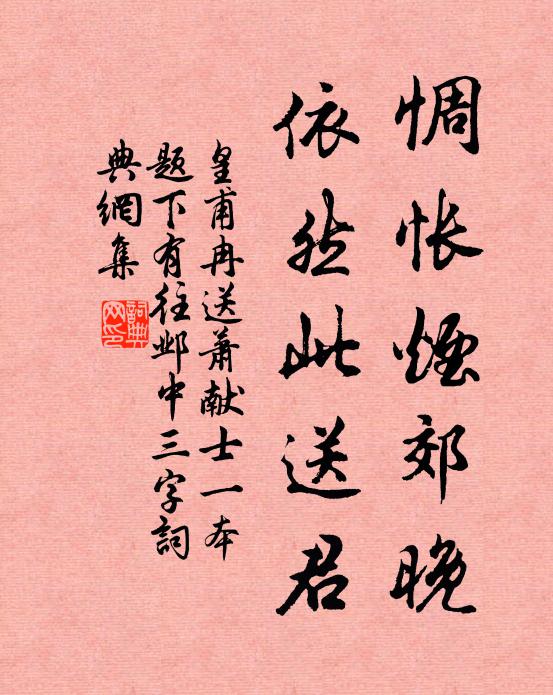 惆怅煙郊晚
依然此送君
皇甫冉送萧献士一本
题下有往邺中三字詞
典網集
詞典网印